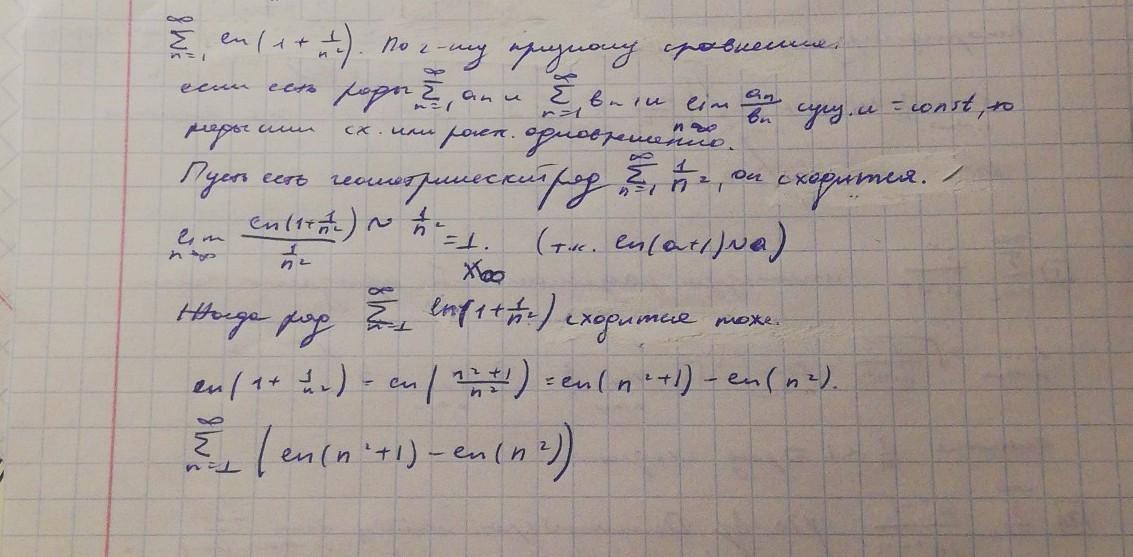 ∑_{n=1}^{∞} ln(1 + 1/n²). По 2-му признаку сравнения:
если есть ряды ∑_{n=1}^{∞} aₙ и ∑_{n=1}^{∞} bₙ, и lim_{n→∞} aₙ/bₙ сущ. и = const, то
ряды или сх. или расх. одновременно.
Пусть есть геометрический ряд ∑_{n=1}^{∞} 1/n², он сходится.
lim_{n→∞} ln(1+1/n²) ~ 1/n² / 1/n² = 1. (т.к. ln(a+1)~a)
Тогда ряд ∑_{n=1}^{∞} ln(1+1/n²) сходится тоже.
ln(1 + 1/n²) = ln((n²+1)/n²) = ln(n²+1) - ln(n²).
∑_{n=1}^{∞} (ln(n²+1) - ln(n²))